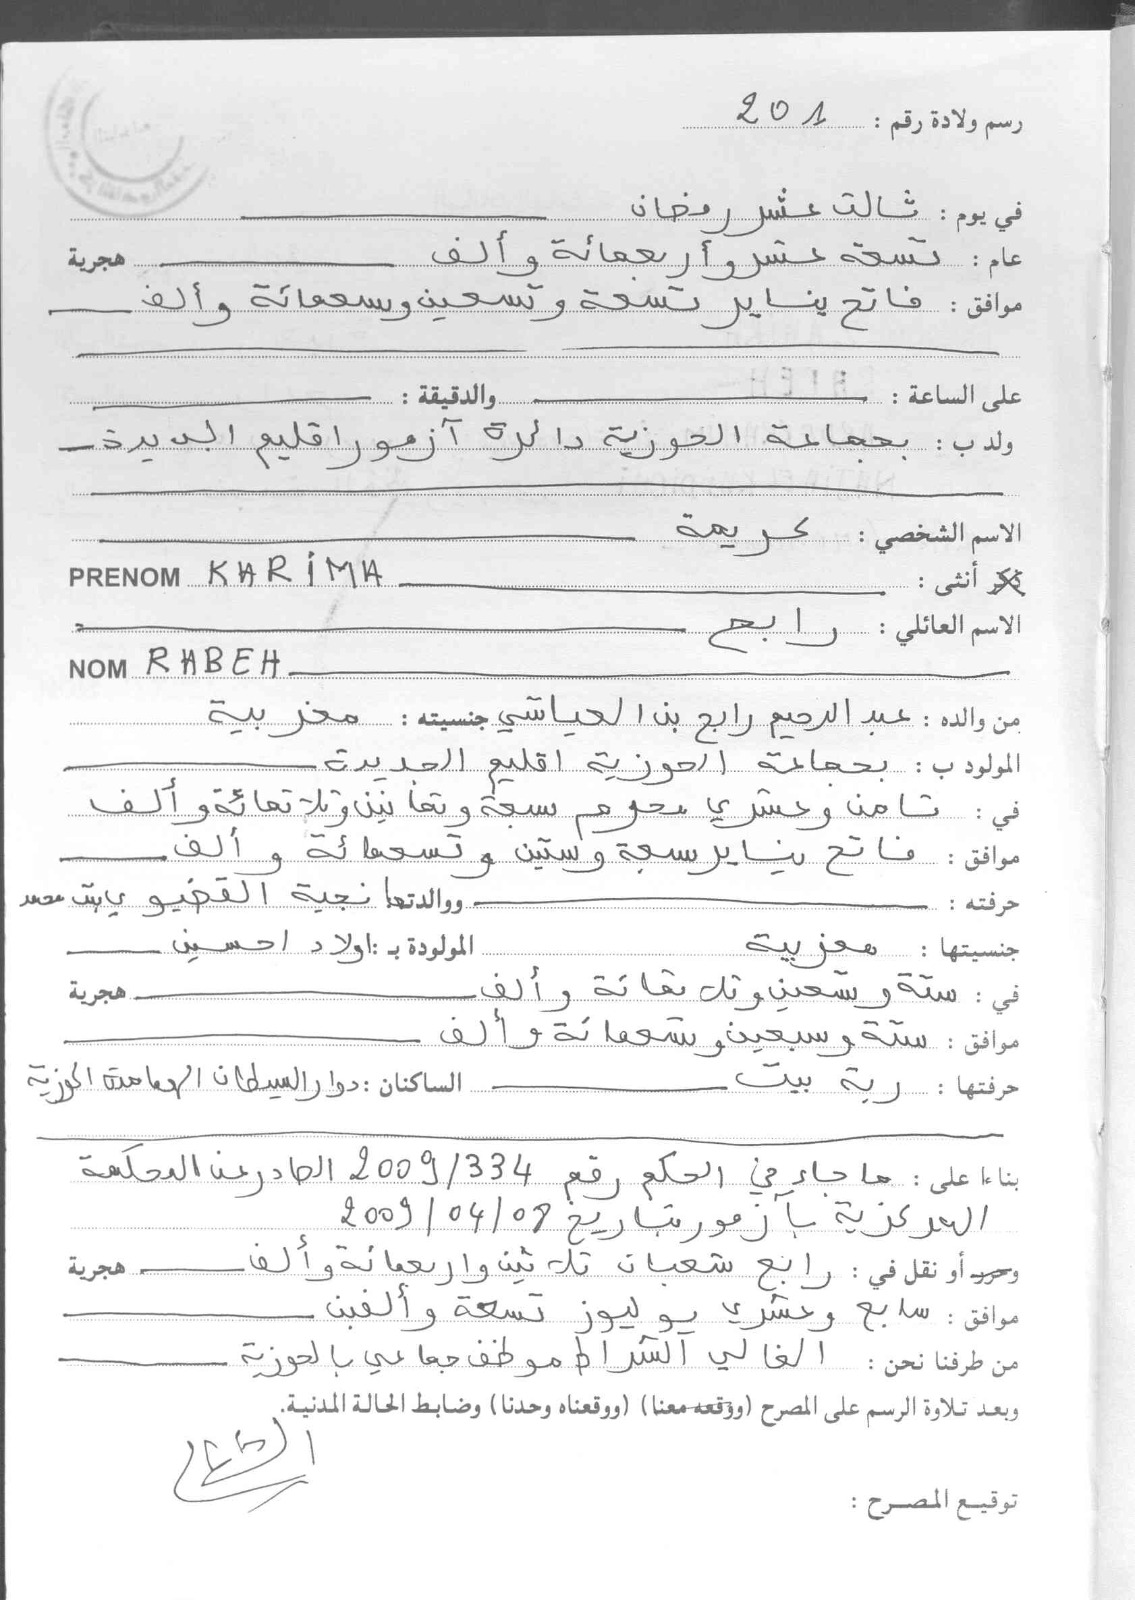 رسم ولادة رقم : 201
في يوم : ثالث عشر رمضان
عام : تسعة عشر وأربعمائة وألف هجرية
موافق : فاتح يناير تسعة وتسعين وتسعمائة وألف
على الساعة : والدقيقة :
ولد ب : بجماعة الحوزية دائرة آزمور اقليم الجديدة
الاسم الشخصي : كريمة
PRENOM KARIMA ذكر أنثى :
الاسم العائلي : رابح
NOM RABEH
من والده : عبد الرحيم رابح بن العياشي جنسيته : مغربية
المولود ب : بجماعة الحوزية اقليم الجديدة
في : ثامن وعشري محرم سبعة وثمانين وثلاثمائة وألف
موافق : فاتح يناير سبعة وستين وتسعمائة وألف
حرفته : ووالدتها نجية القضيوي بنت محمد
جنسيتها : مغربية المولودة بـ : اولاد احسين
في : ستة وتسعين وثلاثمائة وألف هجرية
موافق : ستة وسبعين وتسعمائة وألف
حرفتها : ربة بيت الساكنان : دوار السلطان المهامدة الحوزية
بناءا على : ما جاء في الحكم رقم 2009/334 الصادر عن المحكمة
المركزية بآزمور بتاريخ 2009/04/08
وحرر أو نقل في : رابع شعبان ثلاثين واربعمائة وألف هجرية
موافق : سابع وعشري يوليوز تسعة وألفين
من طرفنا نحن : الغالي الشراط موظف جماعي بالحوزية
وبعد تلاوة الرسم على المصرح (ووقعه معنا) (ووقعناه وحدنا) وضابط الحالة المدنية.
توقيع المصرح :